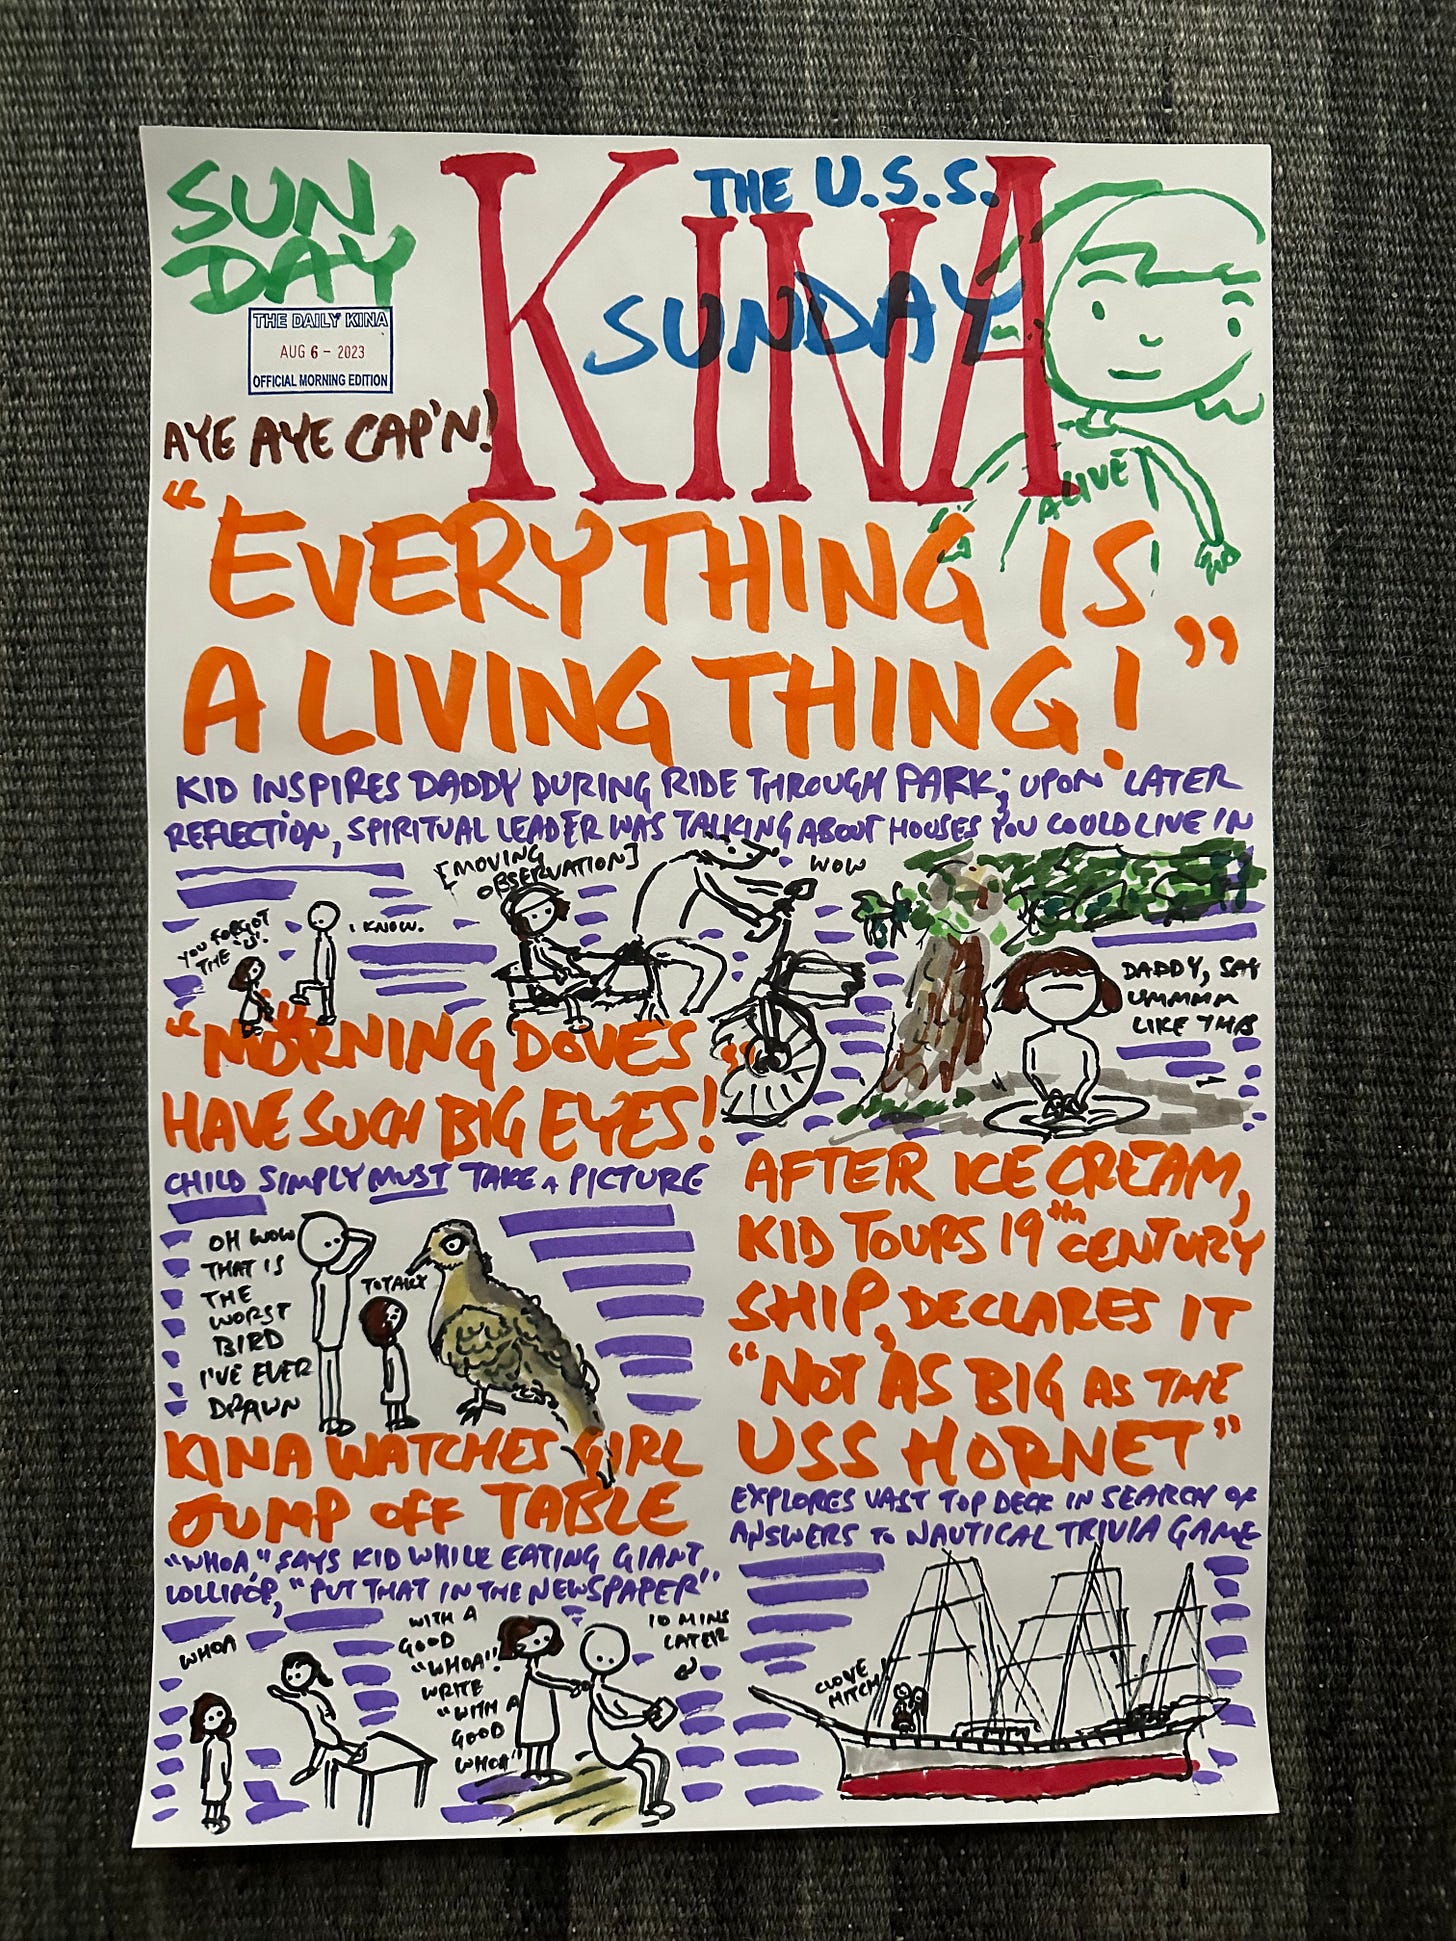 SUN
DAY
THE DAILY KINA
AUG 6 - 2023
OFFICIAL MORNING EDITION
THE U.S.S.
KINA
SUNDAY
AYE AYE CAP'N!
ALIVE
"EVERYTHING IS
A LIVING THING!"
KID INSPIRES DADDY DURING RIDE THROUGH PARK; UPON LATER
REFLECTION, SPIRITUAL LEADER WAS TALKING ABOUT HOUSES YOU COULD LIVE IN
YOU FORGOT
THE "U".
I KNOW.
[MOVING
OBSERVATION]
WOW
DADDY, SAY
UMMMM
LIKE THIS
"MORNING DOVES
HAVE SUCH BIG EYES!"
CHILD SIMPLY MUST TAKE A PICTURE
OH WOW
THAT IS
THE
WORST
BIRD
I'VE EVER
DRAWN
TOTALLY
KINA WATCHES GIRL
JUMP OFF TABLE
"WHOA," SAYS KID WHILE EATING GIANT
LOLLIPOP, "PUT THAT IN THE NEWSPAPER"
WHOA
WITH A
GOOD
"WHOA"!
WRITE
"WITH A
GOOD
WHOA"
10 MINS
LATER
AFTER ICE CREAM,
KID TOURS 19th CENTURY
SHIP, DECLARES IT
"NOT AS BIG AS THE
USS HORNET"
EXPLORES VAST TOP DECK IN SEARCH OF
ANSWERS TO NAUTICAL TRIVIA GAME
CLOVE
HITCH